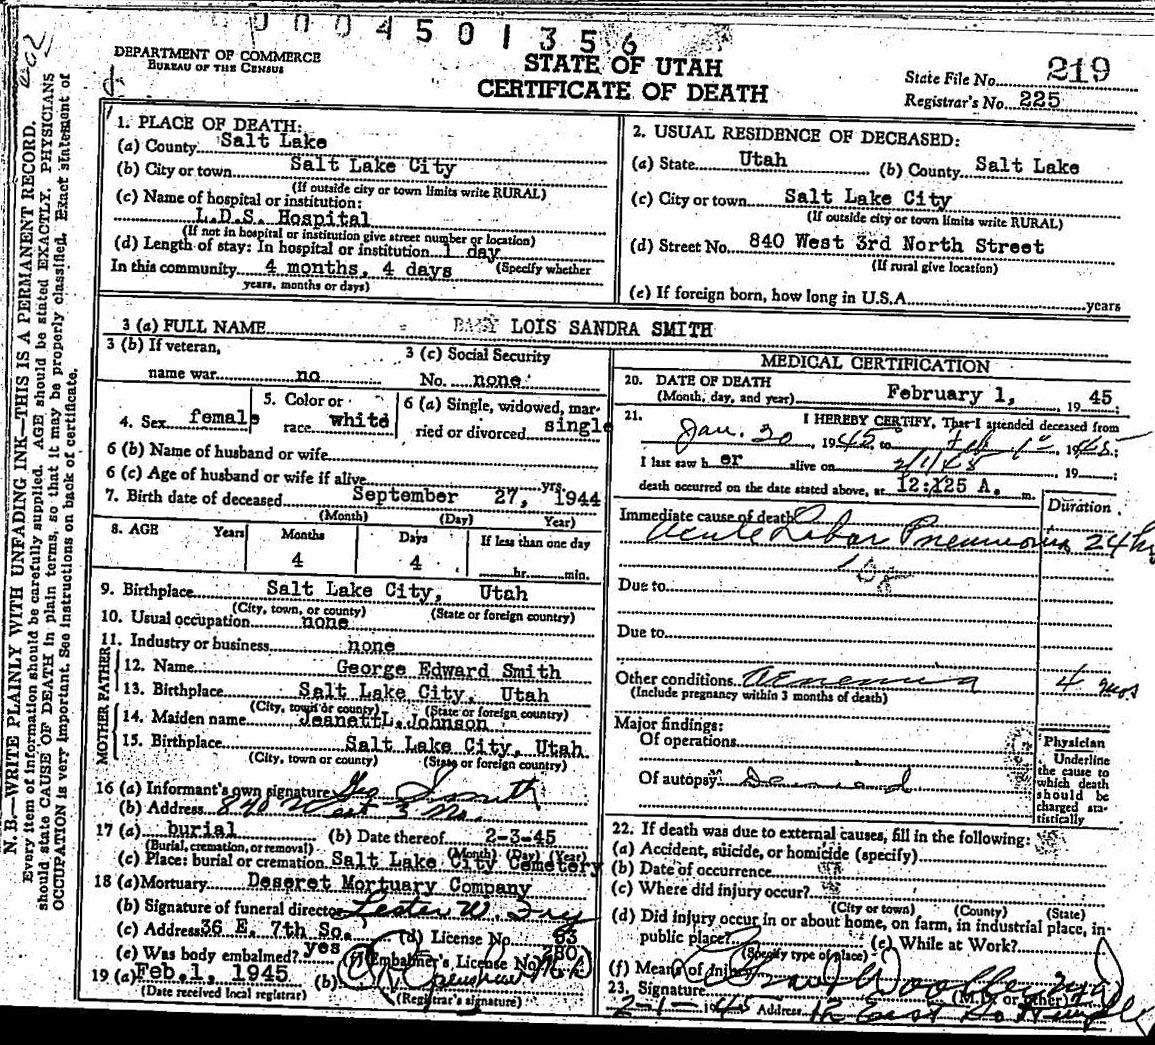 0004501356
DEPARTMENT OF COMMERCE
BUREAU OF THE CENSUS
STATE OF UTAH
CERTIFICATE OF DEATH
State File No. 219
Registrar's No. 225
N. B.—WRITE PLAINLY WITH UNFADING INK—THIS IS A PERMANENT RECORD.
Every item of information should be carefully supplied. AGE should be stated EXACTLY. PHYSICIANS
should state CAUSE OF DEATH in plain terms, so that it may be properly classified. Exact statement of
OCCUPATION is very important. See instructions on back of certificate.
1. PLACE OF DEATH:
(a) County Salt Lake
(b) City or town Salt Lake City
(If outside city or town limits write RURAL)
(c) Name of hospital or institution:
L.D.S. Hospital
(If not in hospital or institution give street number or location)
(d) Length of stay: In hospital or institution 1 day
In this community 4 months, 4 days (Specify whether
years, months or days)
2. USUAL RESIDENCE OF DECEASED:
(a) State Utah (b) County Salt Lake
(c) City or town Salt Lake City
(If outside city or town limits write RURAL)
(d) Street No. 840 West 3rd North Street
(If rural give location)
(e) If foreign born, how long in U.S.A. years
3 (a) FULL NAME BABY LOIS SANDRA SMITH
3 (b) If veteran, 3 (c) Social Security
name war no No. none
4. Sex female 5. Color or race white 6 (a) Single, widowed, mar-
ried or divorced single
6 (b) Name of husband or wife
6 (c) Age of husband or wife if alive yrs.
7. Birth date of deceased September 27, 1944
(Month) (Day) Year)
8. AGE Years Months Days If less than one day
4 4 hr. min.
9. Birthplace Salt Lake City, Utah
(City, town, or county) (State or foreign country)
10. Usual occupation none
11. Industry or business none
FATHER
12. Name George Edward Smith
13. Birthplace Salt Lake City, Utah
(City, town or county) (State or foreign country)
MOTHER
14. Maiden name Jeanett L. Johnson
15. Birthplace Salt Lake City, Utah
(City, town or county) (State or foreign country)
16 (a) Informant's own signature Geo Smith
(b) Address 840 West 3 No.
17 (a) burial (b) Date thereof 2-3-45
(Burial, cremation, or removal) (Month) (Day) (Year)
(c) Place: burial or cremation Salt Lake City Cemetery
18 (a) Mortuary Deseret Mortuary Company
(b) Signature of funeral director Lester W.
(c) Address 36 E. 7th So. (d) License No. 83
(e) Was body embalmed? yes (f) Embalmer's License No.
19 (a) Feb. 1, 1945 (b)
(Date received local registrar) (Registrar's signature)
MEDICAL CERTIFICATION
20. DATE OF DEATH
(Month, day, and year) February 1, 19 45
21. I HEREBY CERTIFY, That I attended deceased from
Jan. 30 1945 to Feb 1st 1945;
I last saw h er alive on 2/1/45 19 ;
death occurred on the date stated above, at 12:125 A. m.
Duration
Immediate cause of death
Acute Lobar Pneumonia 24 hrs
108
Due to
Due to
Other conditions 4 mos
(Include pregnancy within 3 months of death)
Major findings:
Of operations
Of autopsy
Physician
Underline
the cause to
which death
should be
charged sta-
tistically
22. If death was due to external causes, fill in the following:
(a) Accident, suicide, or homicide (specify)
(b) Date of occurrence
(c) Where did injury occur?
(City or town) (County) (State)
(d) Did injury occur in or about home, on farm, in industrial place, in-
public place? (e) While at Work?
(Specify type of place)
(f) Means of Injury
23. Signature
(M.D. or other)
2-1-1945 Address 12 East So Temple